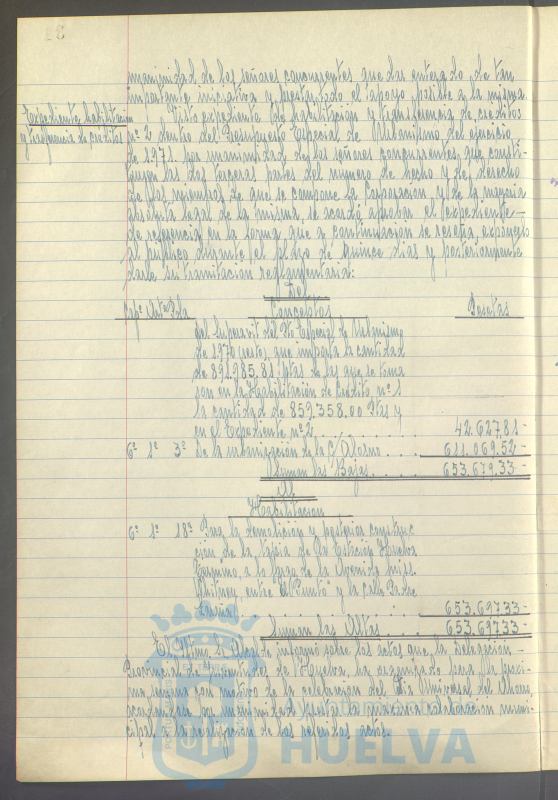 unanimidad de los señores concurrentes quedar enterado de tan
importante iniciativa y prestar todo el apoyo posible a la misma.
Expediente habilitación
y trasferencia de creditos
Visto expediente de habilitación y transferencia de creditos
nº 2 dentro del Presupuesto Especial de Urbanismo del ejercicio
de 1971, por unanimidad de los señores concurrentes, que consti-
tuyen las dos terceras partes del número de hecho y de derecho
de los miembros de que se compone la Corporación, y de la mayoria
absoluta legal de la misma, se acordó aprobar el expediente
de referencia en la forma que a continuación se reseña, exponerlo
al público durante el plazo de quince dias y posteriormente
darle su tramitación reglamentaria:
Del
Capº Artº Pda Conceptos Pesetas
del Superavit del Pto Especial de Urbanismo
de 1970, que importa la cantidad
de 891.985.81 ptas de las que se toma
ron en la Habilitación de Credito nº 1
la cantidad de 859.358.00 Ptas y
en el Expediente nº 2 42.627,81-
6º 1º 3º De la urbanización de la C/ Alosno 611.069.52-
Suman las Bajas 653.679.33-
Al
Habilitación
6º 1º 18º Para la demolición y posterior construc
ción de la tapia de la Estación Huelva
Termino, a lo largo de la Avenida Miss.
Whitney, entre El Punto y la calle Padre
Laraña 653.69733-
Suman las Altas 653.69733-
El Iltmo. Sr. Alcalde informó sobre los actos que la Delegación
Provincial de Juventudes de Huelva, ha organizado para la próxi-
ma semana con motivo de la celebración del Dia Universal del Ahorro,
acordandose por unanimidad prestar la máxima colaboración muni-
cipal a la realización de los referidos actos.
HUELVA